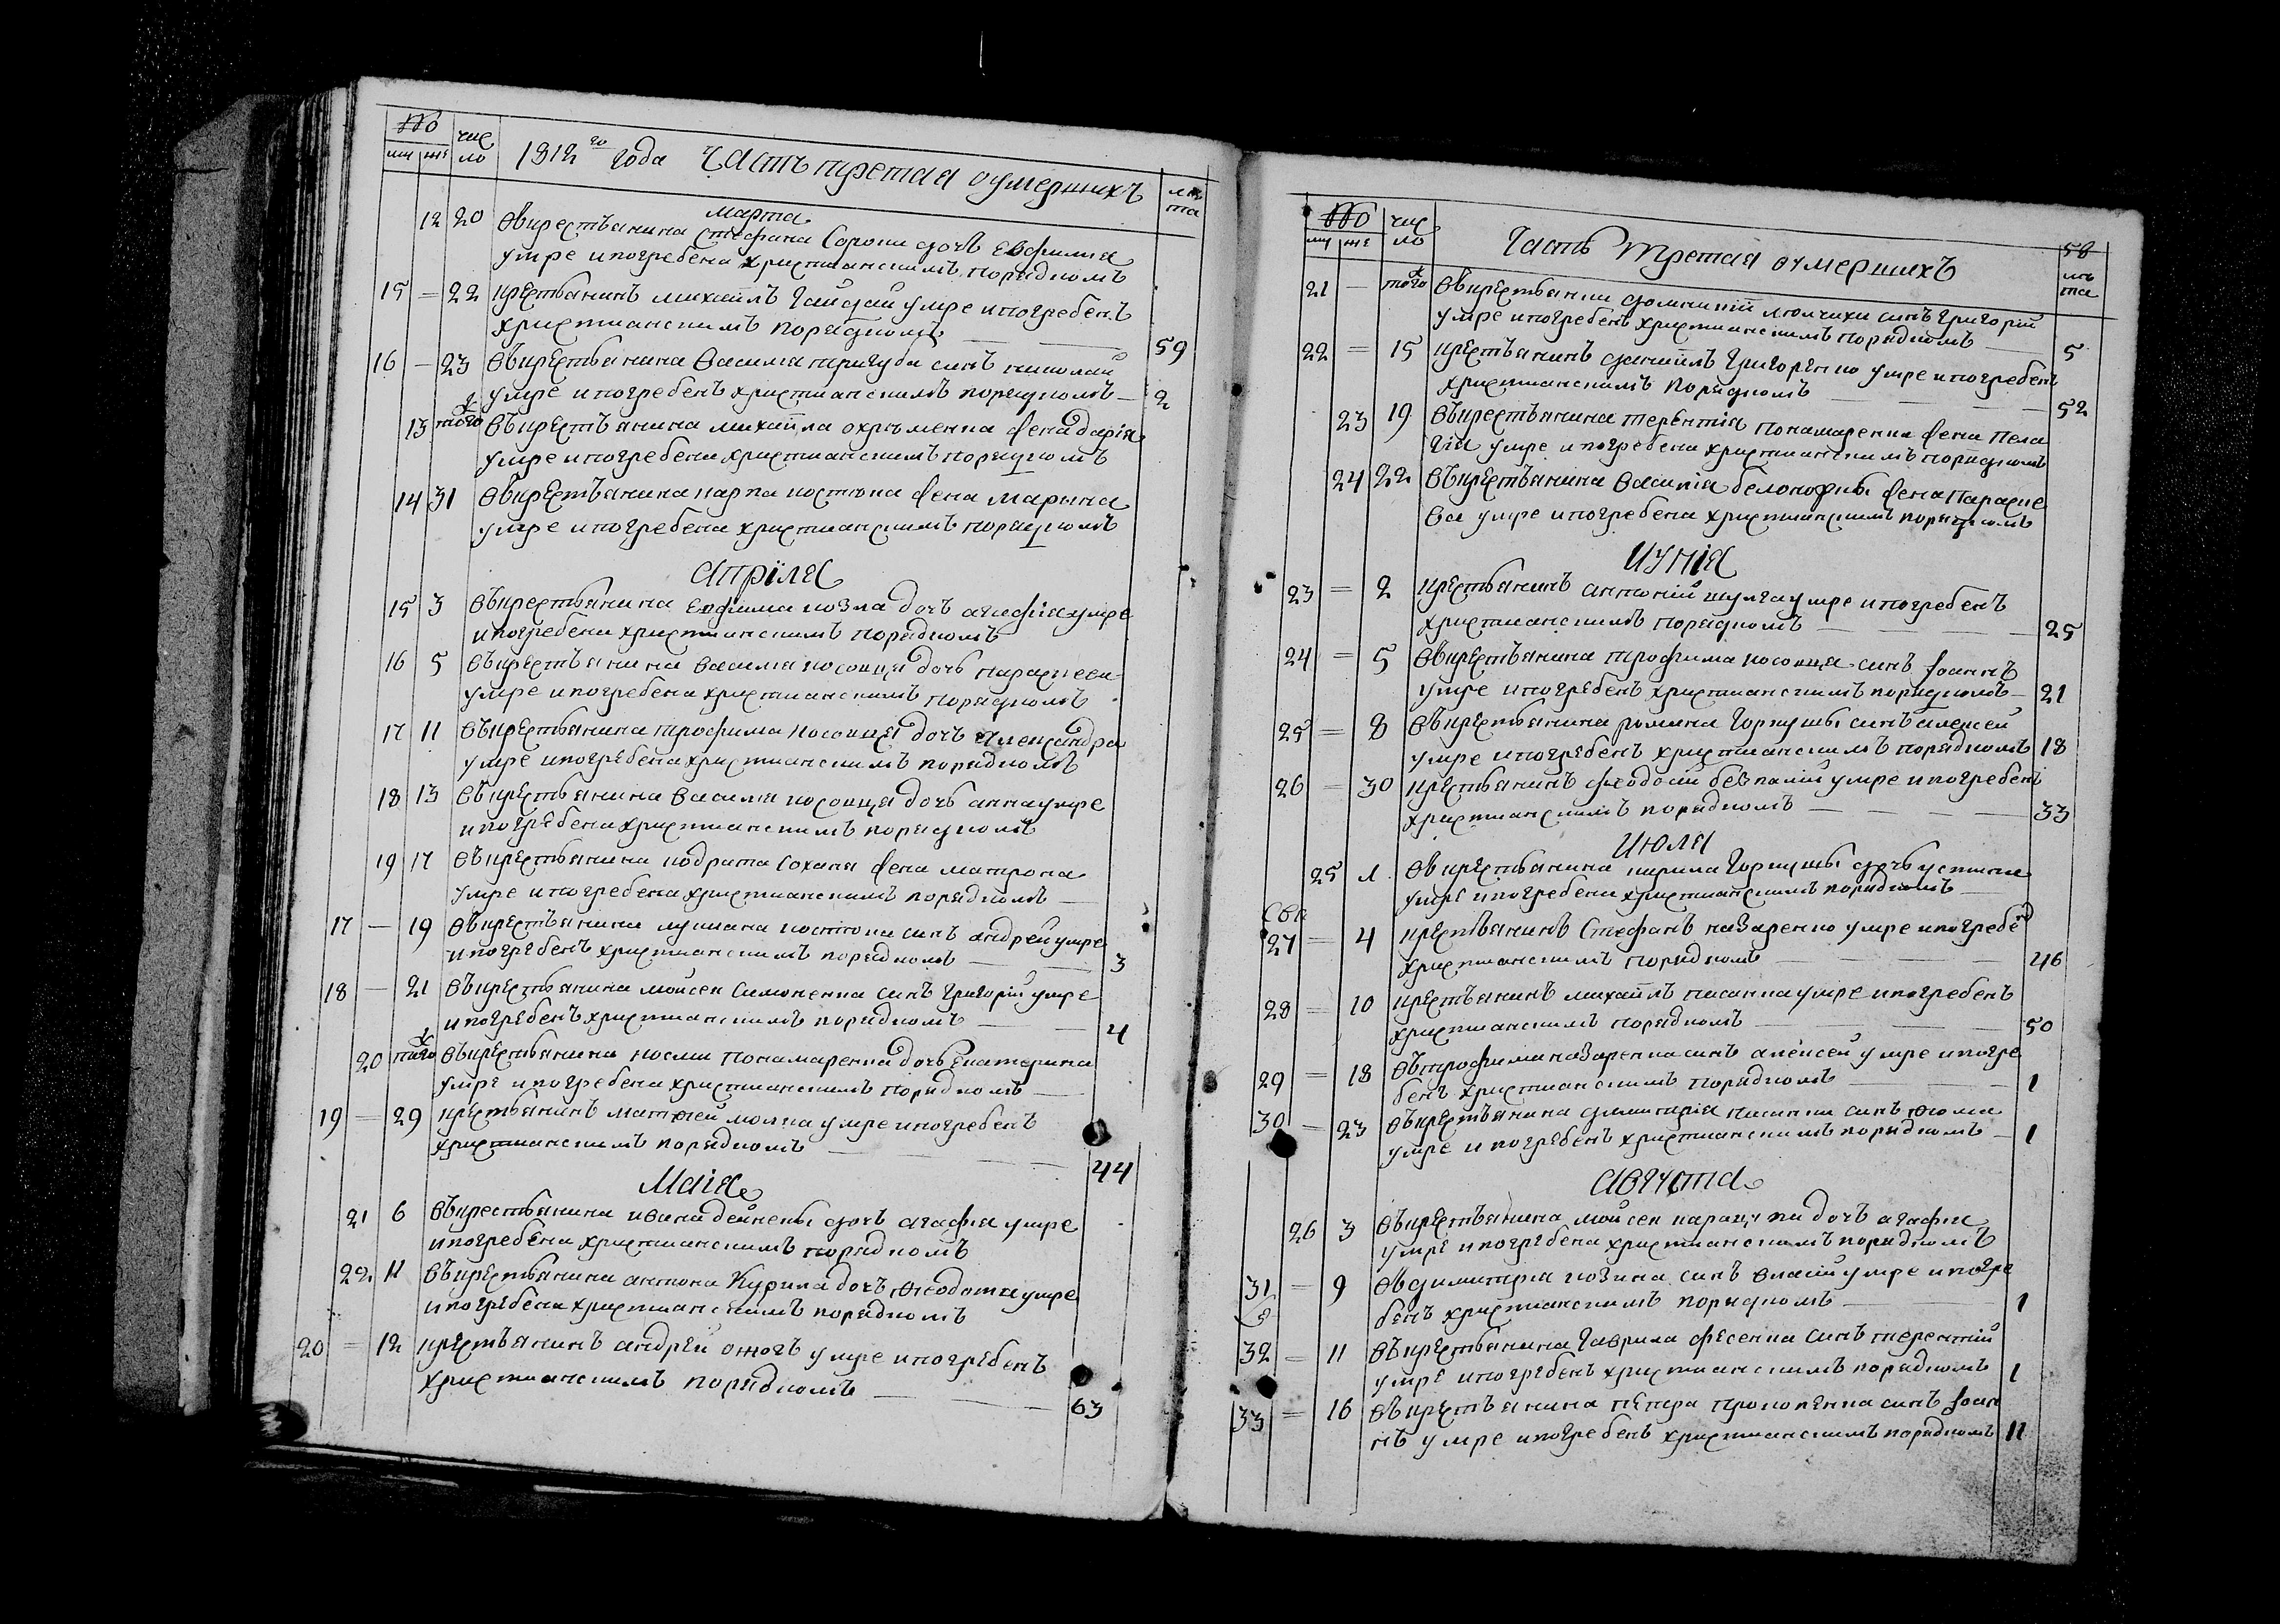 №
муж же числo 1812го года Часть третая оумершихъ лѣта
марта
12 20 Въ крестьянина Стефана Сороки дочъ Евфимия
умре и погребена християнскимъ порядкомъ
15 = 22 крестьянинъ михаилъ Гайдай умре и погребенъ
християнскимъ порядкомъ 59
16 — 23 Въ крестьянина Василия пригуби синъ николай
умре и погребенъ християнскимъ порядкомъ 2
13 того ж Въ крестьянина михайла охрѣменка жена дария
умре и погребена християнскимъ порядкомъ
14 31 Въ крестьянина карпа костюка жена марина
умре и погребена християнскимъ порядкомъ
апріля
15 3 Въ крестьянина Евфима козла дочъ агафія умре
и погребена християнскимъ порядкомъ
16 5 Въ крестьянина василия косовця дочъ параскева
умре и погребена християнскимъ порядкомъ
17 11 Въ крестьянина трофима косовця дочъ александра
умре и погребена християнскимъ порядкомъ
18 13 Въ крестьянина василия косовця дочъ анна умре
и погребена християнскимъ порядкомъ
19 17 Въ крестьянина кодрата сохана жена матрона
умре и погребена християнскимъ порядкомъ
17 — 19 Въ крестьянина лукиана костюка синъ андрей умре
и погребенъ християнскимъ порядкомъ 3
18 — 21 Въ крестьянина мойсея Симоненка синъ григорій умре
и погребенъ християнскимъ порядкомъ 4
20 того ж Въ крестьянина космы понамаренка дочъ екатерина
умре и погребена християнскимъ порядкомъ
19 — 29 крестьянинъ матѳей молка умре и погребенъ
християнскимъ порядкомъ 44
Маія
21 6 Въ крестьянина ивана дейнеки дочъ агафія умре
и погребена християнскимъ порядкомъ
22 11 Въ крестьянина антона Курила дочъ ѳеодотия умре
и погребена християнскимъ порядкомъ
20 = 12 крестьянинъ андрей умре и погребенъ
християнскимъ порядкомъ 63
№
муж же число Часть третая оумершихъ 58 лѣта
21 — того ж Въ крестьянки синъ григорій
умре и погребенъ християнскимъ порядкомъ 5
22 = 15 крестьянинъ данийлъ григоренко умре и погребенъ
християнскимъ порядкомъ 52
23 19 Въ крестьянина терентія понамаренка жена пела
гія умре и погребена християнскимъ порядкомъ
24 22 Въ крестьянина василія белокобили жена параске
ва умре и погребена християнскимъ порядкомъ
иунія
23 = 2 крестьянинъ антоній шулга умре и погребенъ
християнскимъ порядкомъ 25
24 = 5 Въ крестьянина трофима косовця синъ Іоаннъ
умре и погребенъ християнскимъ порядкомъ 21
25 = 8 Въ крестьянина романа горкушы синъ алексей
умре и погребенъ християнскимъ порядкомъ 18
26 = 30 крестьянинъ феодосий безпалий умре и погребенъ
християнскимъ порядкомъ 33
июля
25 Въ крестьянина кирила горкушы дочъ устина
умре и погребена християнскимъ порядкомъ
27 = 4 крестьянинъ Стефанъ назаренко умре и погребе
християнскимъ порядкомъ 46
28 = 10 крестьянинъ михайлъ писанка умре и погребенъ
християнскимъ порядкомъ 50
29 = 18 Въ трофима назаренка синъ алексей умре и погре
бенъ християнскимъ порядкомъ 1
30 = 23 Въ крестьянина димитрія писанки синъ ѳома
умре и погребенъ християнскимъ порядкомъ 1
августа
26 3 Въ крестьянина мойсея дочъ агафия
умре и погребена християнскимъ порядкомъ
31 = 9 Въ димитрія козина синъ власий умре и погре
бенъ християнскимъ порядкомъ 1
32 = 11 Въ крестьянина гаврила фесенка синъ терентий
умре и погребенъ християнскимъ порядкомъ 1
33 = 16 Въ крестьянина петра прокопенка синъ Іоан
нъ умре и погребенъ християнскимъ порядкомъ 11